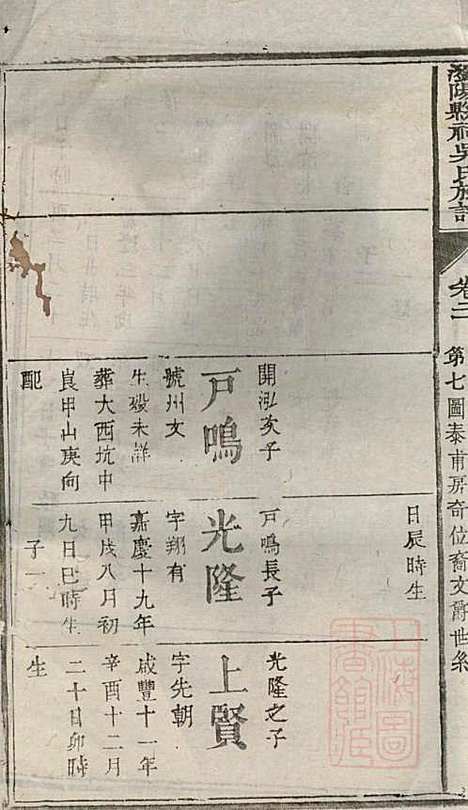 瀏陽縣補吳氏族譜
卷二
第七圖泰甫房奇位裔文爵世系
日辰時生
開泓次子
戶鳴
號州文
生歿未詳
葬大西坑中
艮甲山庚向
配
戶鳴長子
光隆
字翔有
嘉慶十九年
甲戌八月初
九日巳時生
子一
光隆之子
上賢
字先朝
咸豐十一年
辛酉十二月
二十日卯時
生
上海圖書館藏